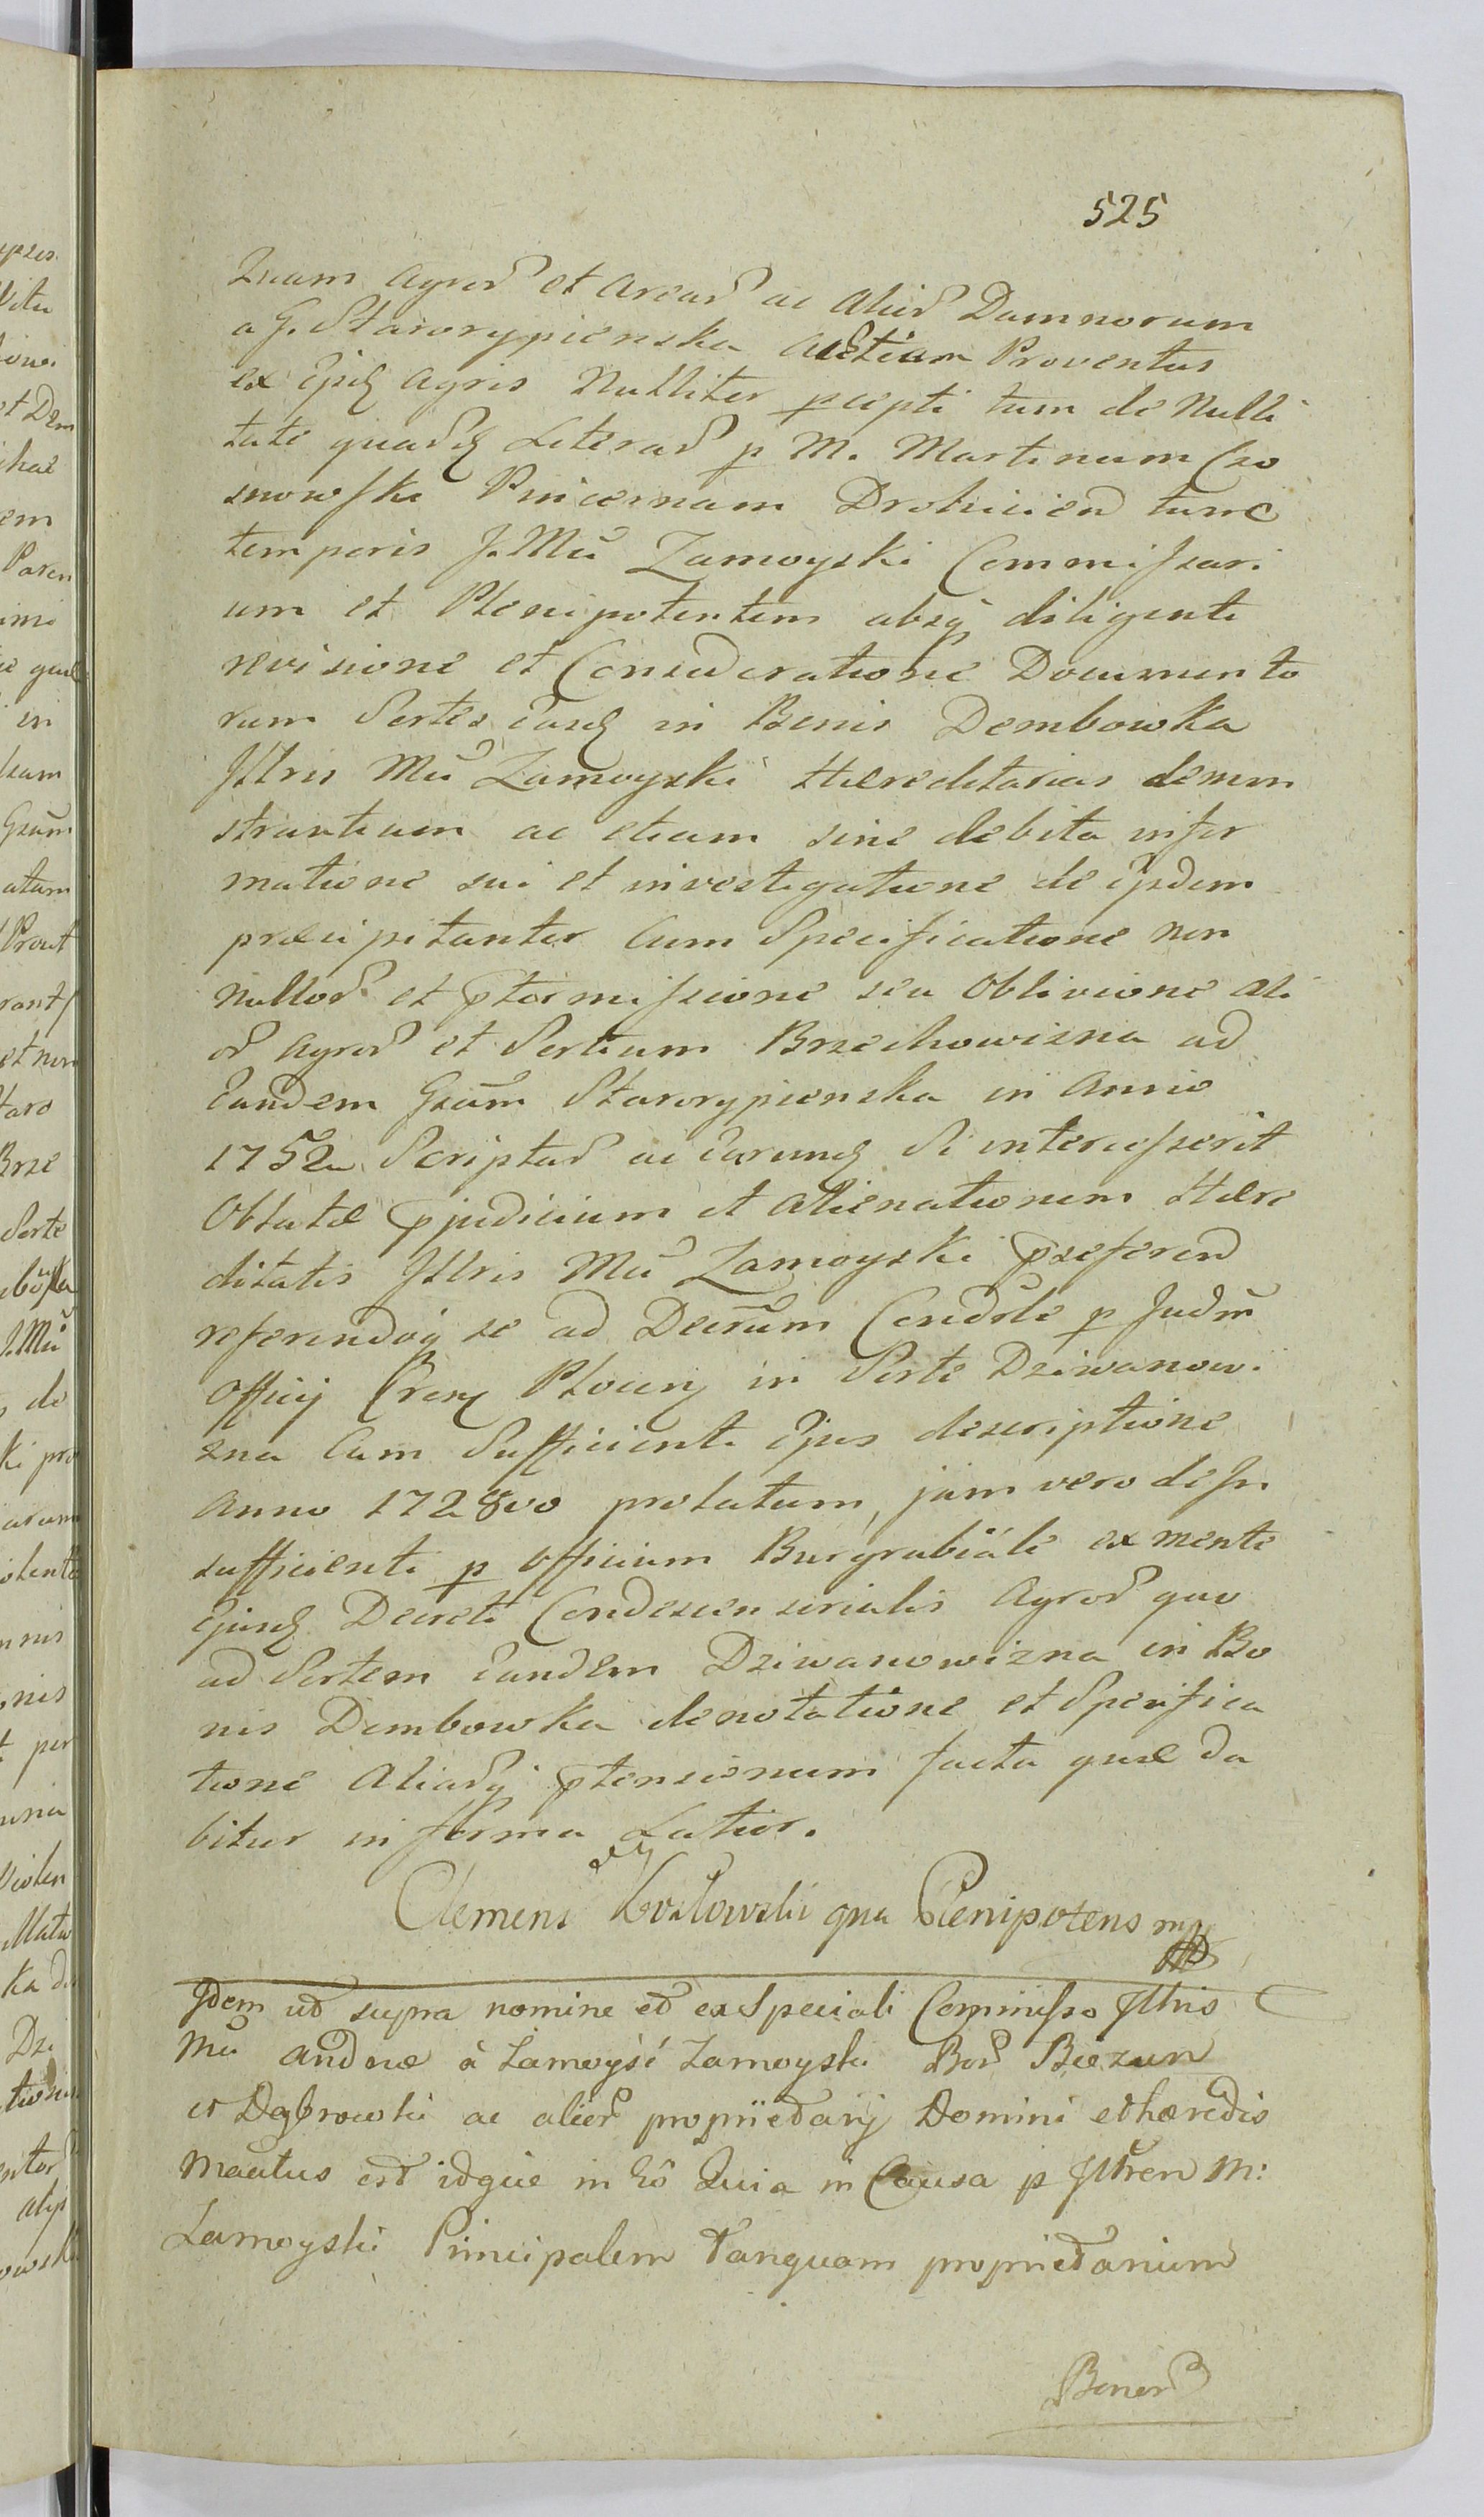 525
quam Agror et Arear ac Alior Damnorum
a G. Starorypienska Actiam Proventus
ex ijsd Agris Nulliter pcepti tum de Nulli
tate quard Literar p M. Martinum Cro
snowski Pincernam Drohicien tunc
temporis J. Mci Zamoyski Commissari
um et Plenipotentem absq diligenti
revisione et Consideratione Documento
rum Sortes easd in Bonis Dembowka
Illris Mci Zamoyski Haereditarias demon
strantium ac etiam sine debita infor
matione sui et investigatione de ijsdem
praecipitanter Cum Specificatione non
nullor et ptermissione seu Oblivione ali
or Agror et Sortium Brzechowizna ad
Eandem Gsam Starorypienska in Anno
1752do Scriptar ac Earund Si intercesserit
Oblatae pjudicium et Alienationem Haere
ditatis Illris Mci Zamoyski pseferen
referendoq se ad Decrum Condsle p Judm
Officij Crens Plocens in Sorte Dziwanowi
zna Cum Sufficienti Ejus descriptione
Anno 1728vo prolatum, jam vero de In
sufficienti p Officium Burgrabiale ex mente
Ejusd Decreti Condescensorialis Agror quo
ad Sortem Eandem Dziwanowizna in Bo
nis Dembowka denotatione et Specifica
tione Aliarq ptensionum facta quae da
bitur in forma Latior.
Clemens Kozlowski qua Plenipotens mp
Idem ut supra nomine et ex Speciali Commisso Illris
Mci Andreae à Zamoyść Zamoyski Bor Biezun
et Dąbrowki ac alior proprietarij Domini et haeredis
Mactus est idque in Eo Quia in Causa p Illren M:
Zamoyski Principalem Tanquam proprietarium
Bonor